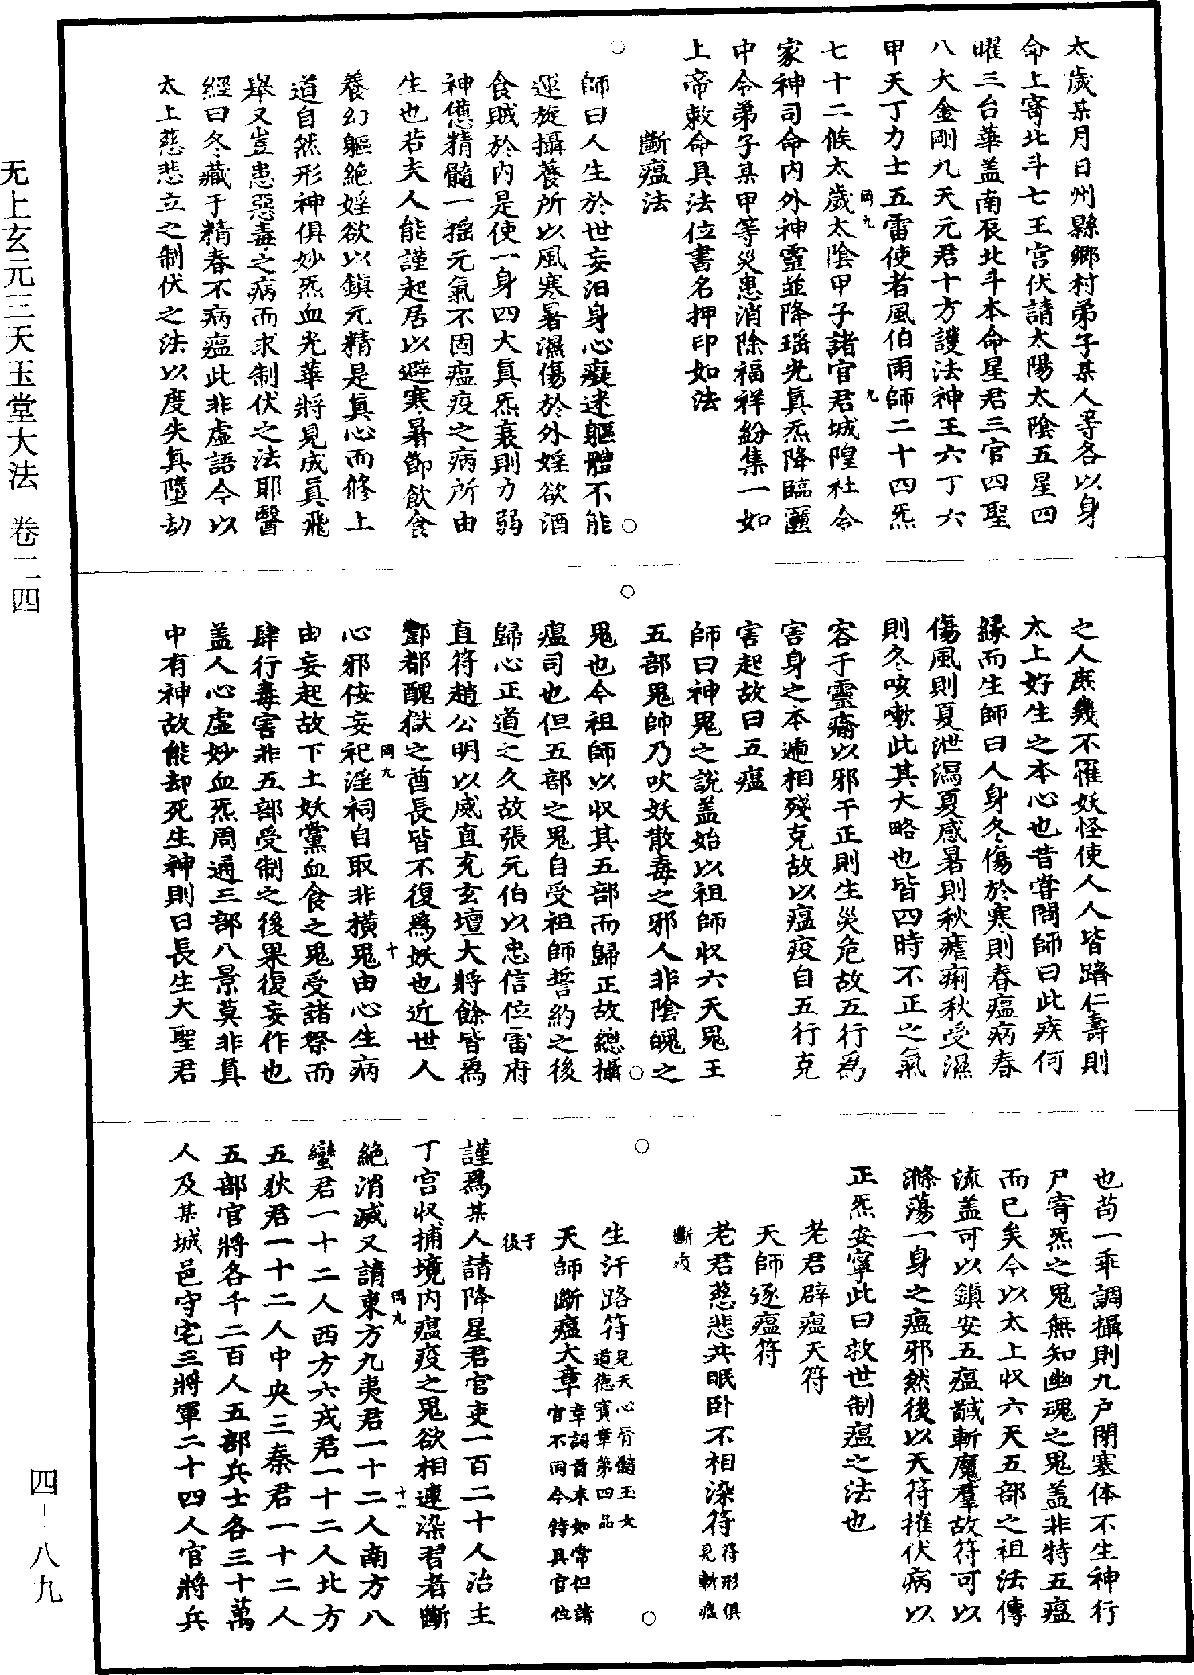 太歲某月日州縣鄉村弟子某人等各以身
命上寄北斗七王宮伏請太陽太陰五星四
曜三台華蓋南辰北斗本命星君三官四聖
八大金剛九天元君十方護法神王六丁六
甲天丁力士五雷使者風伯雨師二十四炁
七十二候太歲太陰甲子諸官君城隍社令
家神司命內外神靈並降瑶光真炁降臨
中令弟子某甲等災患消除福祥紛集一如
上帝敕命具法位書名押印如法
斷瘟法
師曰人生於世妄汨身心癡迷軀體不能
運旋攝養所以風寒暑濕傷於外婬欲酒
食賊於內是使一身四大真炁衰則力弱
神憊精髓一摇元氣不固瘟疫之病所由
生也若夫人能謹起居以避寒暑節飲食
養幻軀絕婬欲以鎮元精是真心而修上
道自然形神俱妙炁血光華將見成真飛
舉又豈患惡毒之病而求制伏之法耶醫
經曰冬藏于精春不病瘟此非虛語今以
太上慈悲立之制伏之法以度失真墮劫
之人庶幾不罹妖怪使人人皆躋仁壽則
太上好生之本心也昔嘗問師曰此疾何
緣而生師曰人身冬傷於寒則春瘟病春
傷風則夏泄瀉夏感暑則秋瘧痢秋受濕
則冬咳嗽此其大略也皆四時不正之氣
容于靈齋以邪干正則生災危故五行為
害身之本遞相殘克故以瘟疫自五行克
害起故曰五瘟
師曰神鬼之說蓋始以祖師收六天鬼王
五部鬼帥乃吹妖散毒之邪人非陰魄之
鬼也今祖師以收其五部而歸正故總攝
瘟司也但五部之鬼自受祖師誓約之後
歸心正道之久故張元伯以忠信位雷府
直符趙公明以威直充玄壇大將餘皆為
酆都醜獄之酋長皆不復為妖也近世人
心邪佞妄祀淫祠自取非橫鬼由心生病
由妄起故下土妖黨血食之鬼受諸祭而
肆行毒害非五部受制之後果復妄作也
蓋人心虛妙血炁周通三部八景莫非真
中有神故能却死生神則曰長生大聖君
也苟一乖調攝則九户閉塞体不生神行
尸寄炁之鬼無知幽魂之鬼蓋非特五瘟
而已矣今以太上收六天五部之祖法傳
流蓋可以鎮安五瘟馘斬魔羣故符可以
滌蕩一身之瘟邪然後以天符摧伏病以
正炁安寧此曰救世制瘟之法也
老君辟瘟天符
天師逐瘟符
老君慈悲共眠卧不相染符符形俱見斬瘟斷疫
生汗路符見天心骨髓玉文道德寶章第四品
天師斷瘟大章章詞首末如常但請官不同今符具官位于後
謹為某人請降星君官吏一百二十人治主
丁宮收捕境內瘟疫之鬼欲相連染者斷
絕消滅又請東方九夷君一十二人南方八
蠻君一十二人西方六戎君一十二人北方
五狄君一十二人中央三秦君一十二人
五部官將各千二百人五部兵士各三十萬
人及某城邑守宅三將軍二十四人官將兵
无上玄元三天玉堂大法 卷二四
四-八九